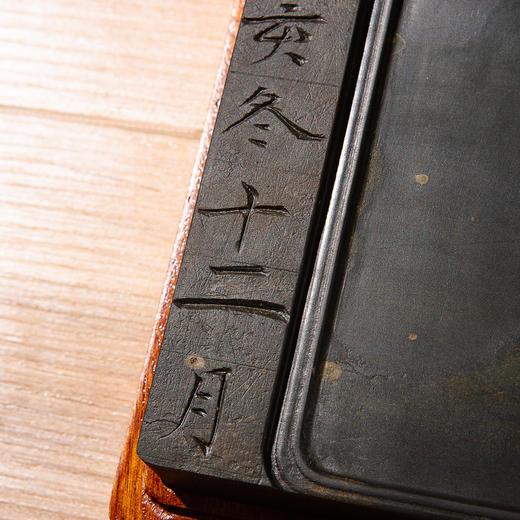 亥冬十二月